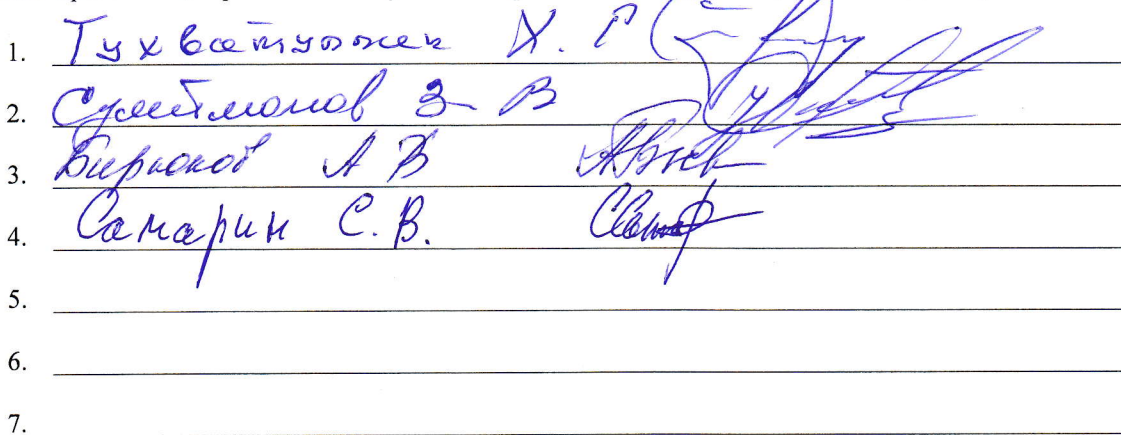 1. Тухватуллин Х. Г
2. Сулейманов З В
3. Бирюков А В
4. Самарин С.В.
5.
6.
7.